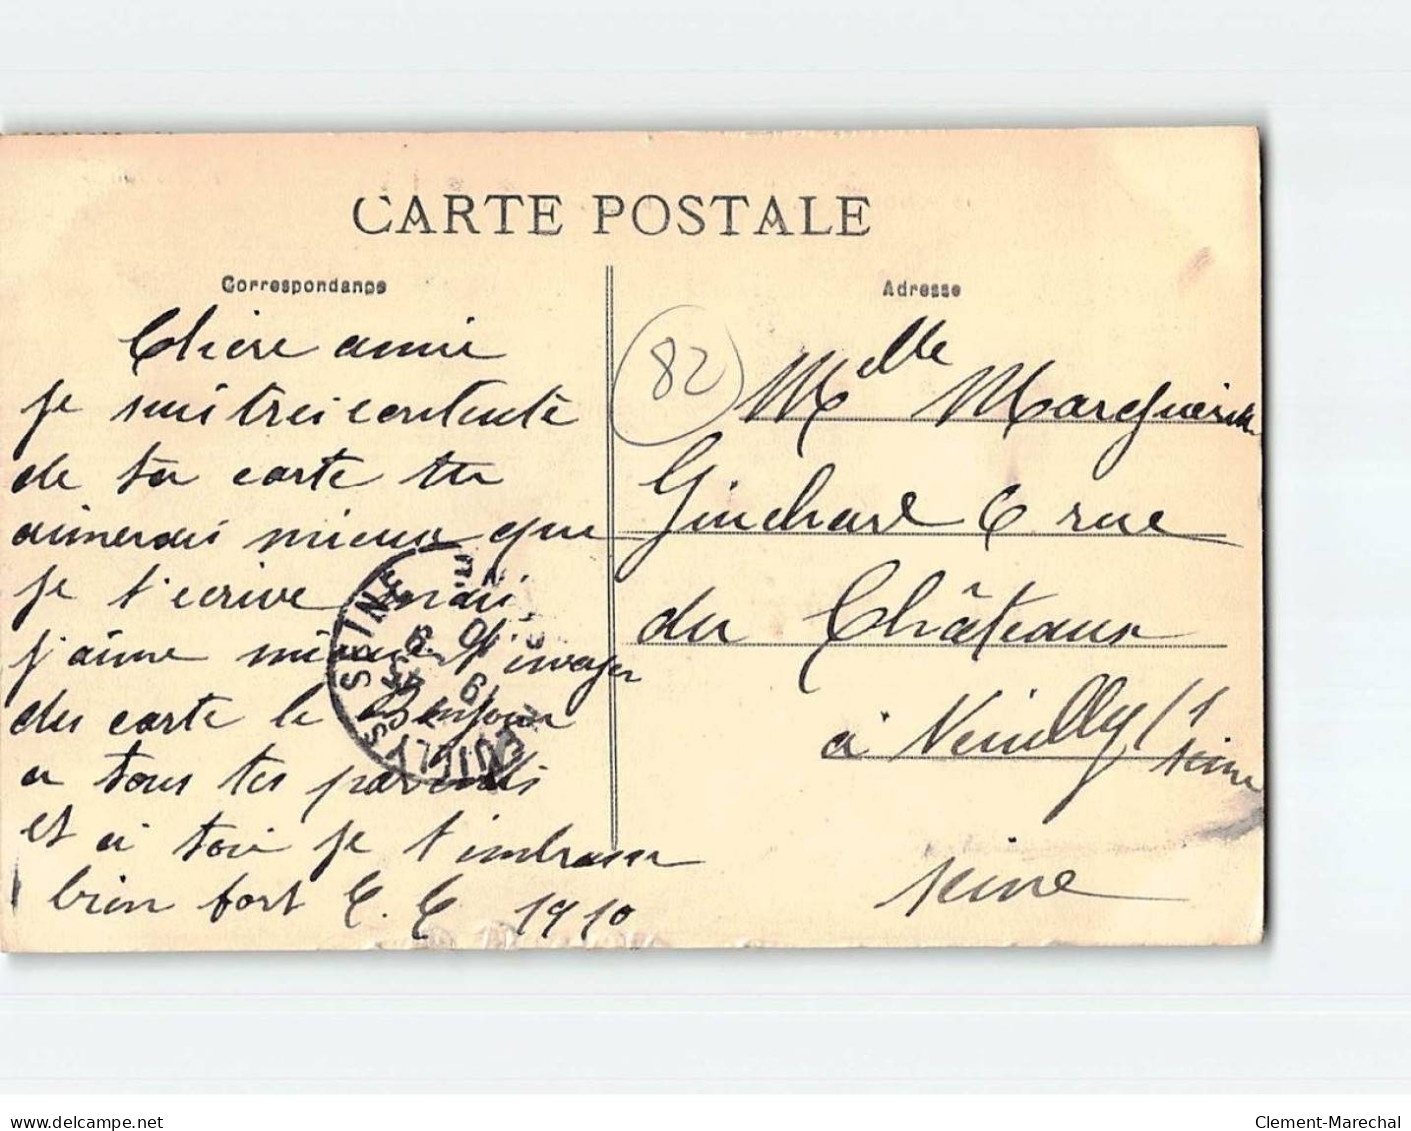 CARTE POSTALE
Correspondance
Chère amie
je suis très contente
de ta carte tu
aimerais mieux que
je t'écrive mais
j'aime mieux t'invoyer
des carte le bonjour
a tous tes parents
et a toi je t'imbrasse
bien fort C. C 1910
Adresse
82
Melle Marguerite
Guichard 6 rue
du Château
à Neuilly s/
seine
seine
NEUILLY S SEINE
www.delcampe.net
Clement-Marechal